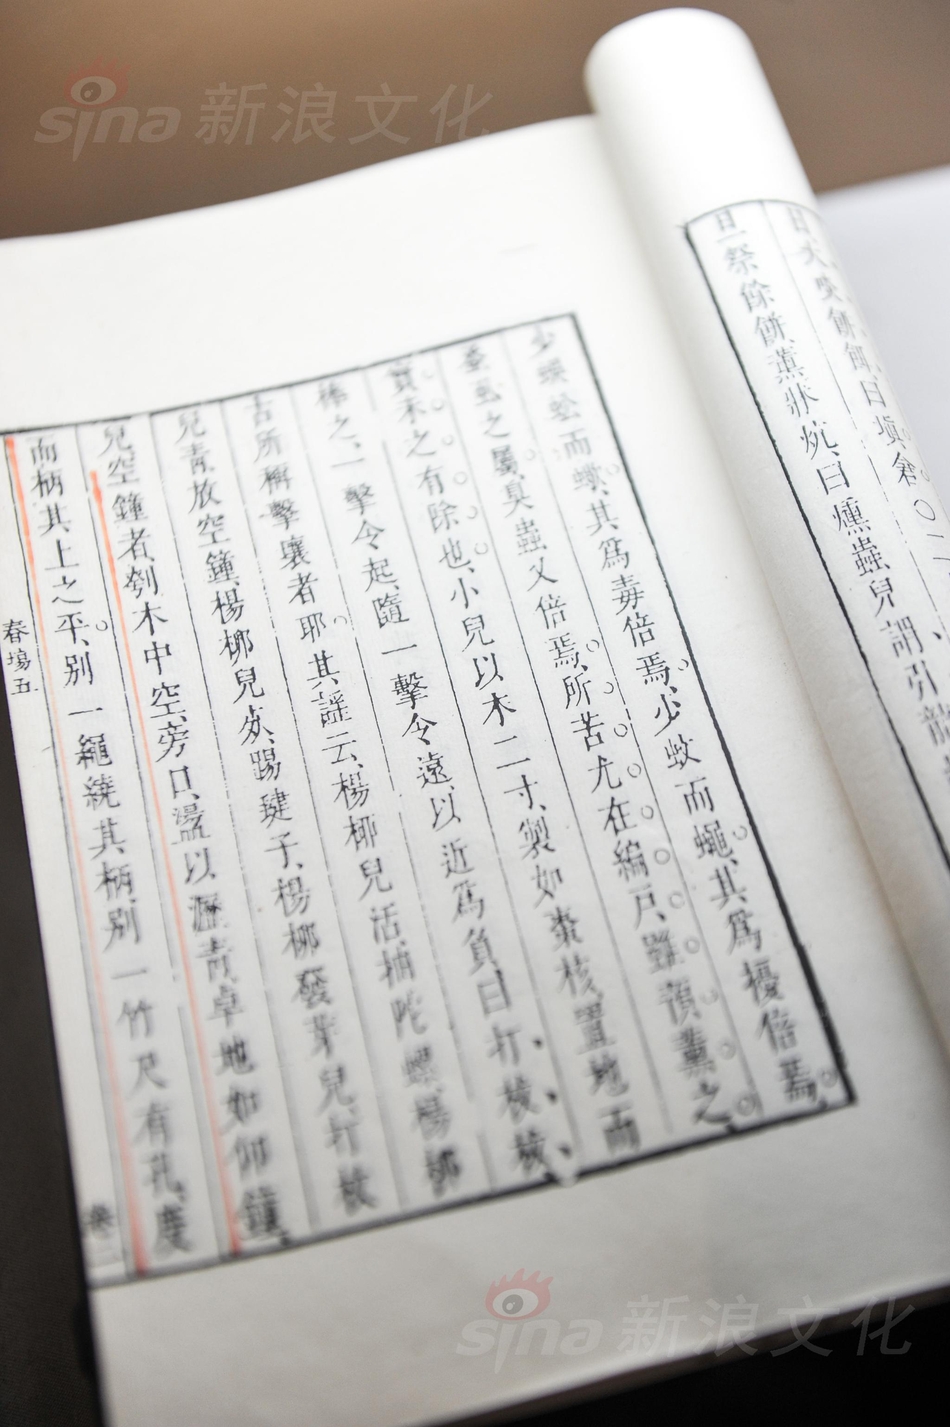 sina 新浪文化
曰祭餘餅薰牀炕曰燻蟲兒謂引龍
少𧎸蚣而蠍其為毒倍焉少蚊而蠅其為擾倍焉
蚤虱之屬臭蟲又倍焉所苦尤在編戶雖預薰之
實未之有除也小兒以木二寸製如棗核置地而
棒之一擊令起隨一擊令遠以近為負曰打柭柭
古所稱擊壤者耶其謠云楊柳兒活抽陀螺楊柳
兒青放空鐘楊柳兒死踢毽子楊柳發芽兒打柭
兒空鐘者刳木中空旁口盪以瀝青卓地如仰鐘
而柄其上之平別一繩繞其柄別一竹尺有孔度
春場五
卷二
sina 新浪文化